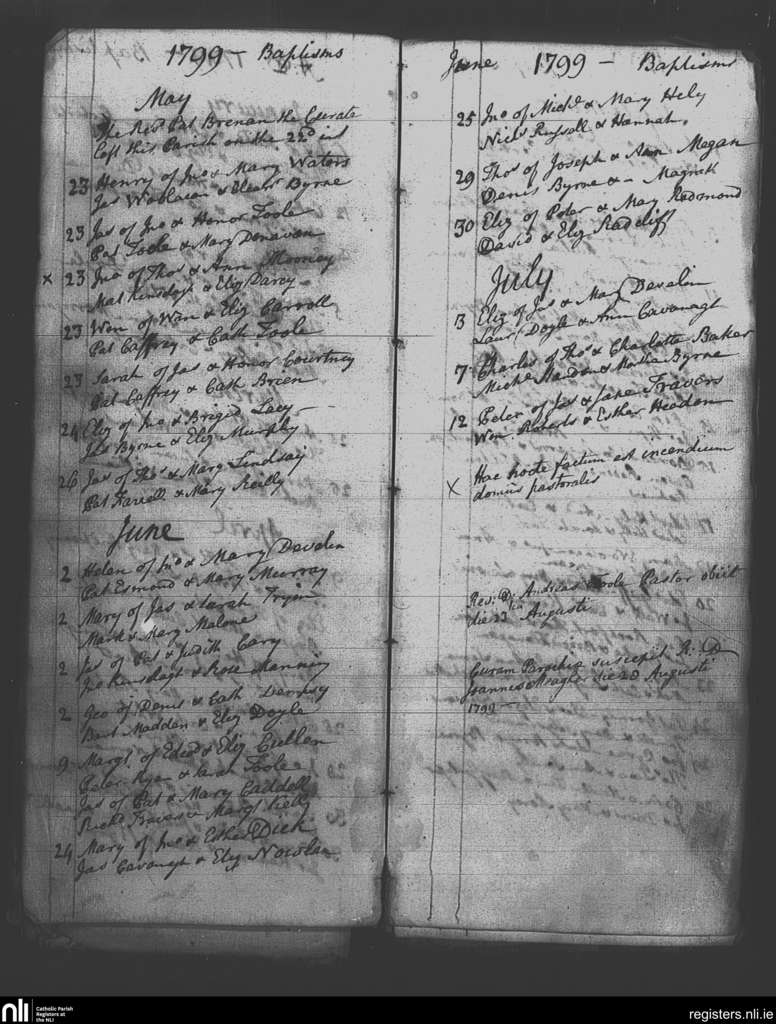 1799 – Baptisms
May
The Revd Pat Brenan the Curate
left this Parish on the 22d inst
23 Henry of Jno & Mary Waters
Jas & Eleanr Byrne
23 Jas of Jno & Honor Toole
Pat Toole & Mary Donavan
x 23 Jno of Thos & Ann Mooney
Mat Kinslagh & Eliz Darcy
23 Wm of Wm & Eliz Carroll
Pat Caffray & Cath Toole
23 Sarah of Jas & Honor Courtney
Pat Caffray & Cath Brien
24 Eliz of Jno & Brigid Lacy
Jas Byrne & Eliz Murphy
26 Jas of Thos & Mary Lindsay
Pat Farrell & Mary Reilly
June
2 Helen of Jno & Mary Develin
Pat Esmond & Mary Murray
2 Mary of Jas & Sarah
Mark & Mary Malone
2 Jas of Pat & Judith Cary
Jno Kinslagh & Rose Manning
2 Geo of Denis & Cath Dempsy
Bart Madden & Eliz Doyle
9 Margt of Edwd & Eliz Cullen
Peter Ryan & Sarah Toole
Jas of Pat & Mary Caddell
Richd Travers & Margt Kelly
24 Mary of Jno & Esther Dick
Jas Cavanagh & Eliz Nowlan
June 1799 – Baptisms
25 Jno of Michl & Mary Hely
Nichs Russell & Hannah
29 Thos of Joseph & Ann Magan
Denis Byrne & – Magrath
30 Eliz of Peter & Mary Redmond
David & Eliz Radcliff
July
3 Eliz of Jas & Mary Develin
Laur Doyle & Ann Cavanagh
7 Charles of Thos & Charlotte Baker
Michl & Martha Byrne
12 Peter of Jas & Jane Travers
Wm Roberts & Esther Headon
x Hac nocte factum est incendium
domus pastoralis
Rev: D: Andreas Toole Pastor obiit
die 23 Augusti
Curam Parochiæ suscepit R. D
Joannes Meagher die 28 Augusti
1799 –
nli
Catholic Parish
Registers at
the NLI
registers.nli.ie